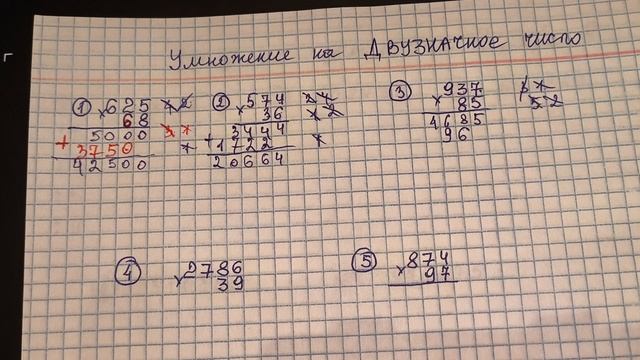 Умножение на ДВУЗНАЧНОЕ число
① ×625
68
5000
+ 3750
42500
② ×574
36
3444
+ 1722
20664
③ × 937
85
4685
96
④ ×2786
39
⑤ ×874
97